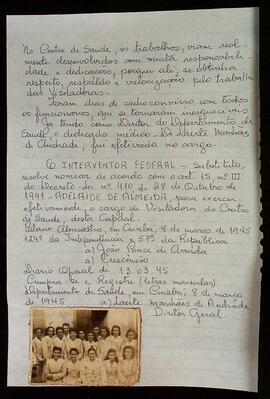 No Centro de Saúde, os trabalhos, eram real-
mente desenvolvidos com muita responsabili-
dade e dedicação, porque ali, se obtinha
respeito, respaldo e valorização pelo trabalho
das Visitadoras.
Foram dias de sadio convívio com todos
os funcionários, que se tornaram inesquecíveis
Já tendo como Diretor do Departamento de
Saúde, o dedicado médico - Dr. Laerte Manhães
de Andrade, fui efetivada no cargo.
O INTERVENTOR FEDERAL - Substituto,
resolve nomear de acordo com o art. 15, nº III
do Decreto-lei nº 410, de 28 de Outubro de
1941 - ADELAIDE DE ALMEIDA, para exercer
efetivamente, o cargo de Visitadora do Centro
de Saúde, desta Capital.
Palácio Alencastro, em Cuiabá, 8 de março de 1945
124º da Independência e 57º da República
a) João Ponce de Arruda
a) Crescêncio
Diário Oficial de 13.03.45
Cumpra-se e Registre (letras maiúsculas)
Departamento de Saúde em Cuiabá, 8 de março
de 1945 a) Laerte Manhães de Andrade
Diretor Geral